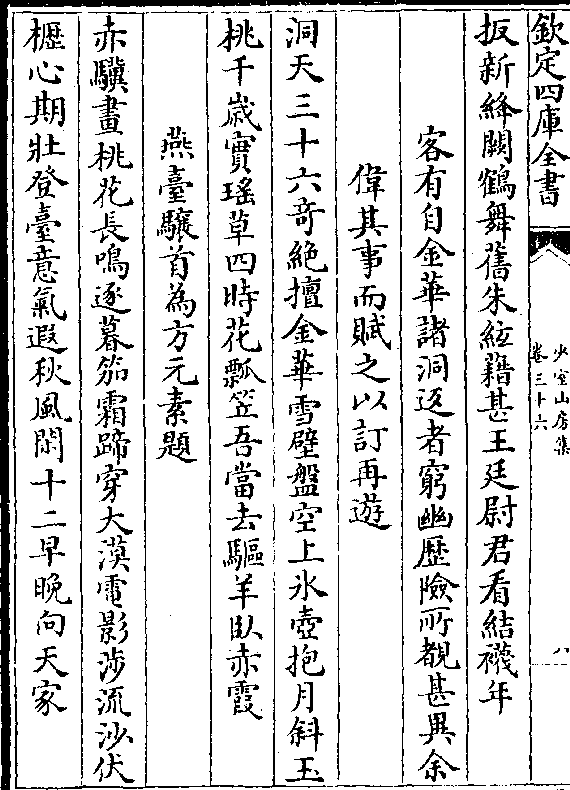 欽定四庫全書
少室山房集
卷三十六
八
扳新絳闕鶴舞舊朱絃藉甚王廷尉君看結襪年
客有自金華諸洞返者窮幽歷險所覩甚異余
偉其事而賦之以訂再遊
洞天三十六竒絶擅金華雪壁盤空上氷壺抱月斜玉
桃千歳實瑶草四時花瓢笠吾當去驅羊臥赤霞
燕臺驤首為方元素題
赤驥畫桃花長鳴逐暮笳霜蹄穿大漠電影渉流沙伏
櫪心期壯登臺意氣遐秋風閑十二早晚向天家